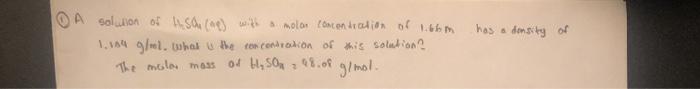 ① A solution of H₂SO₄ (aq) with a molar concentration of 1.66m has a density of
1.104 g/ml. What is the concentration of this solution?
The molar mass of H₂SO₄ = 98.08 g/mol.